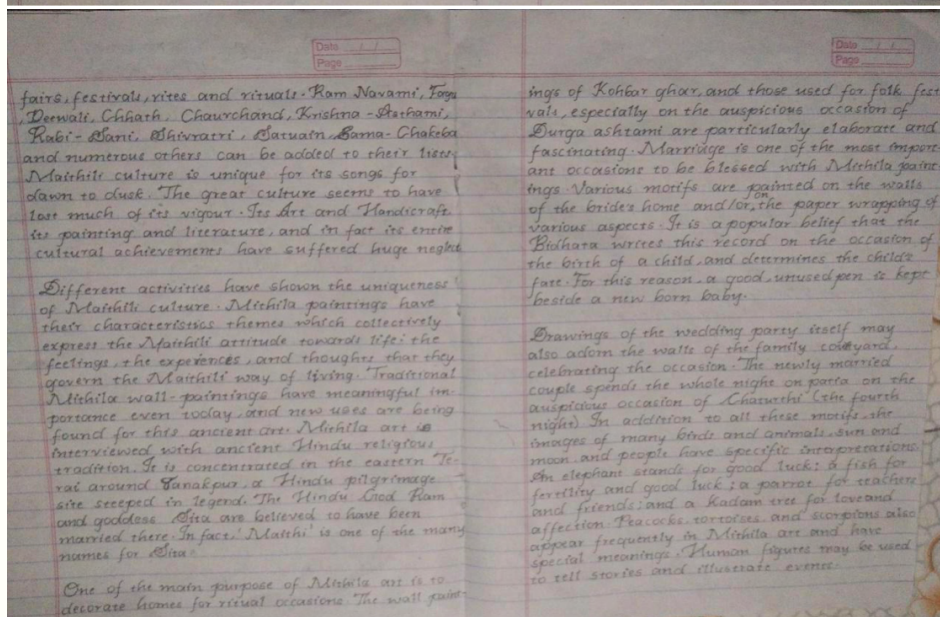 Date / /
Page
fairs, festivals, rites and rituals. Ram Navami,
, Deewali, Chhath, Chaurchand, Krishna-Asthami,
Rabi-Sani, Shivratri, Satuain, Sama-Chakeba
and numerous others can be added to their
Maithili culture is unique for its songs for
dawn to dusk. The great culture seems to have
lost much of its vigour. Its Art and Handicraft
its painting and literature, and in fact its entire
cultural achievements have suffered huge neglect
Different activities have shown the uniqueness
of Maithili culture. Mithila paintings have
their characteristics themes which collectively
express the Maithili attitude towards life: the
feelings, the experences, and thoughts that they
govern the Maithili way of living. Traditional
Mithila wall-paintings have meaningful im-
portance even today, and new uses are being
found for this ancient art. Mithila art is
interviewed with ancient Hindu religious
tradition. It is concentrated in the eastern Te-
rai around Janakpur, a Hindu pilgrimage
site steeped in legend. The Hindu God Ram
and goddess Sita are believed to have been
married there. In fact, 'Maithi' is one of the many
names for Sita.
One of the main purpose of Mithila art is to
decorate homes for ritual occasions. The wall paint-
Date / /
Page
ings of Kohbar ghar, and those used for folk fest
vals, especially on the auspicious occasion of
Durga ashtami are particularly elaborate and
fascinating. Marriage is one of the most import-
ant occasions to be blessed with Mithila paint
ings. Various motifs are painted on the walls
of the bride's home and/or, on the paper wrapping of
various aspects. It is a popular belief that the
Bidhata writes this record on the occasion of
the birth of a child, and determines the child's
fate. For this reason, a good, unused pen is kept
beside a new born baby.
Drawings of the wedding party itself may
also adorn the walls of the family
celebrating the occasion. The newly married
couple spends the whole night on patia on the
auspicious occasion of Chaturthi (the fourth
night). In addition to all these motifs, the
images of many birds and animals, sun and
moon, and people have specific interpretations.
An elephant stands for good luck; a fish for
fertility and good luck; a parrot for teachers
and friends; and a Kadam tree for love and
affection. Peacocks, tortoises, and scorpions also
appear frequently in Mithila art and have
special meanings. Human figures may be used
to tell stories and illustrate events.